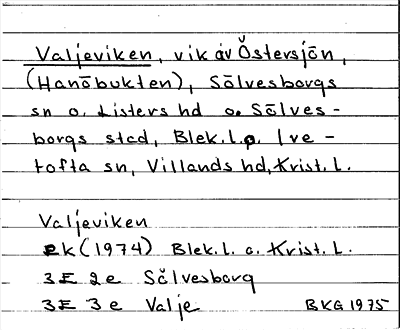 Valjeviken, vik av Östersjön,
(Hanöbukten), Sölvesborgs
sn o. Listers hd o. Sölves-
borgs stad, Blek.l. o. Ive-
tofta sn, Villands hd, Krist.l.
Valjeviken
ek (1974) Blek.l. o. Krist.l.
3E 2e Sölvesborg
3E 3e Valje BKG 1975